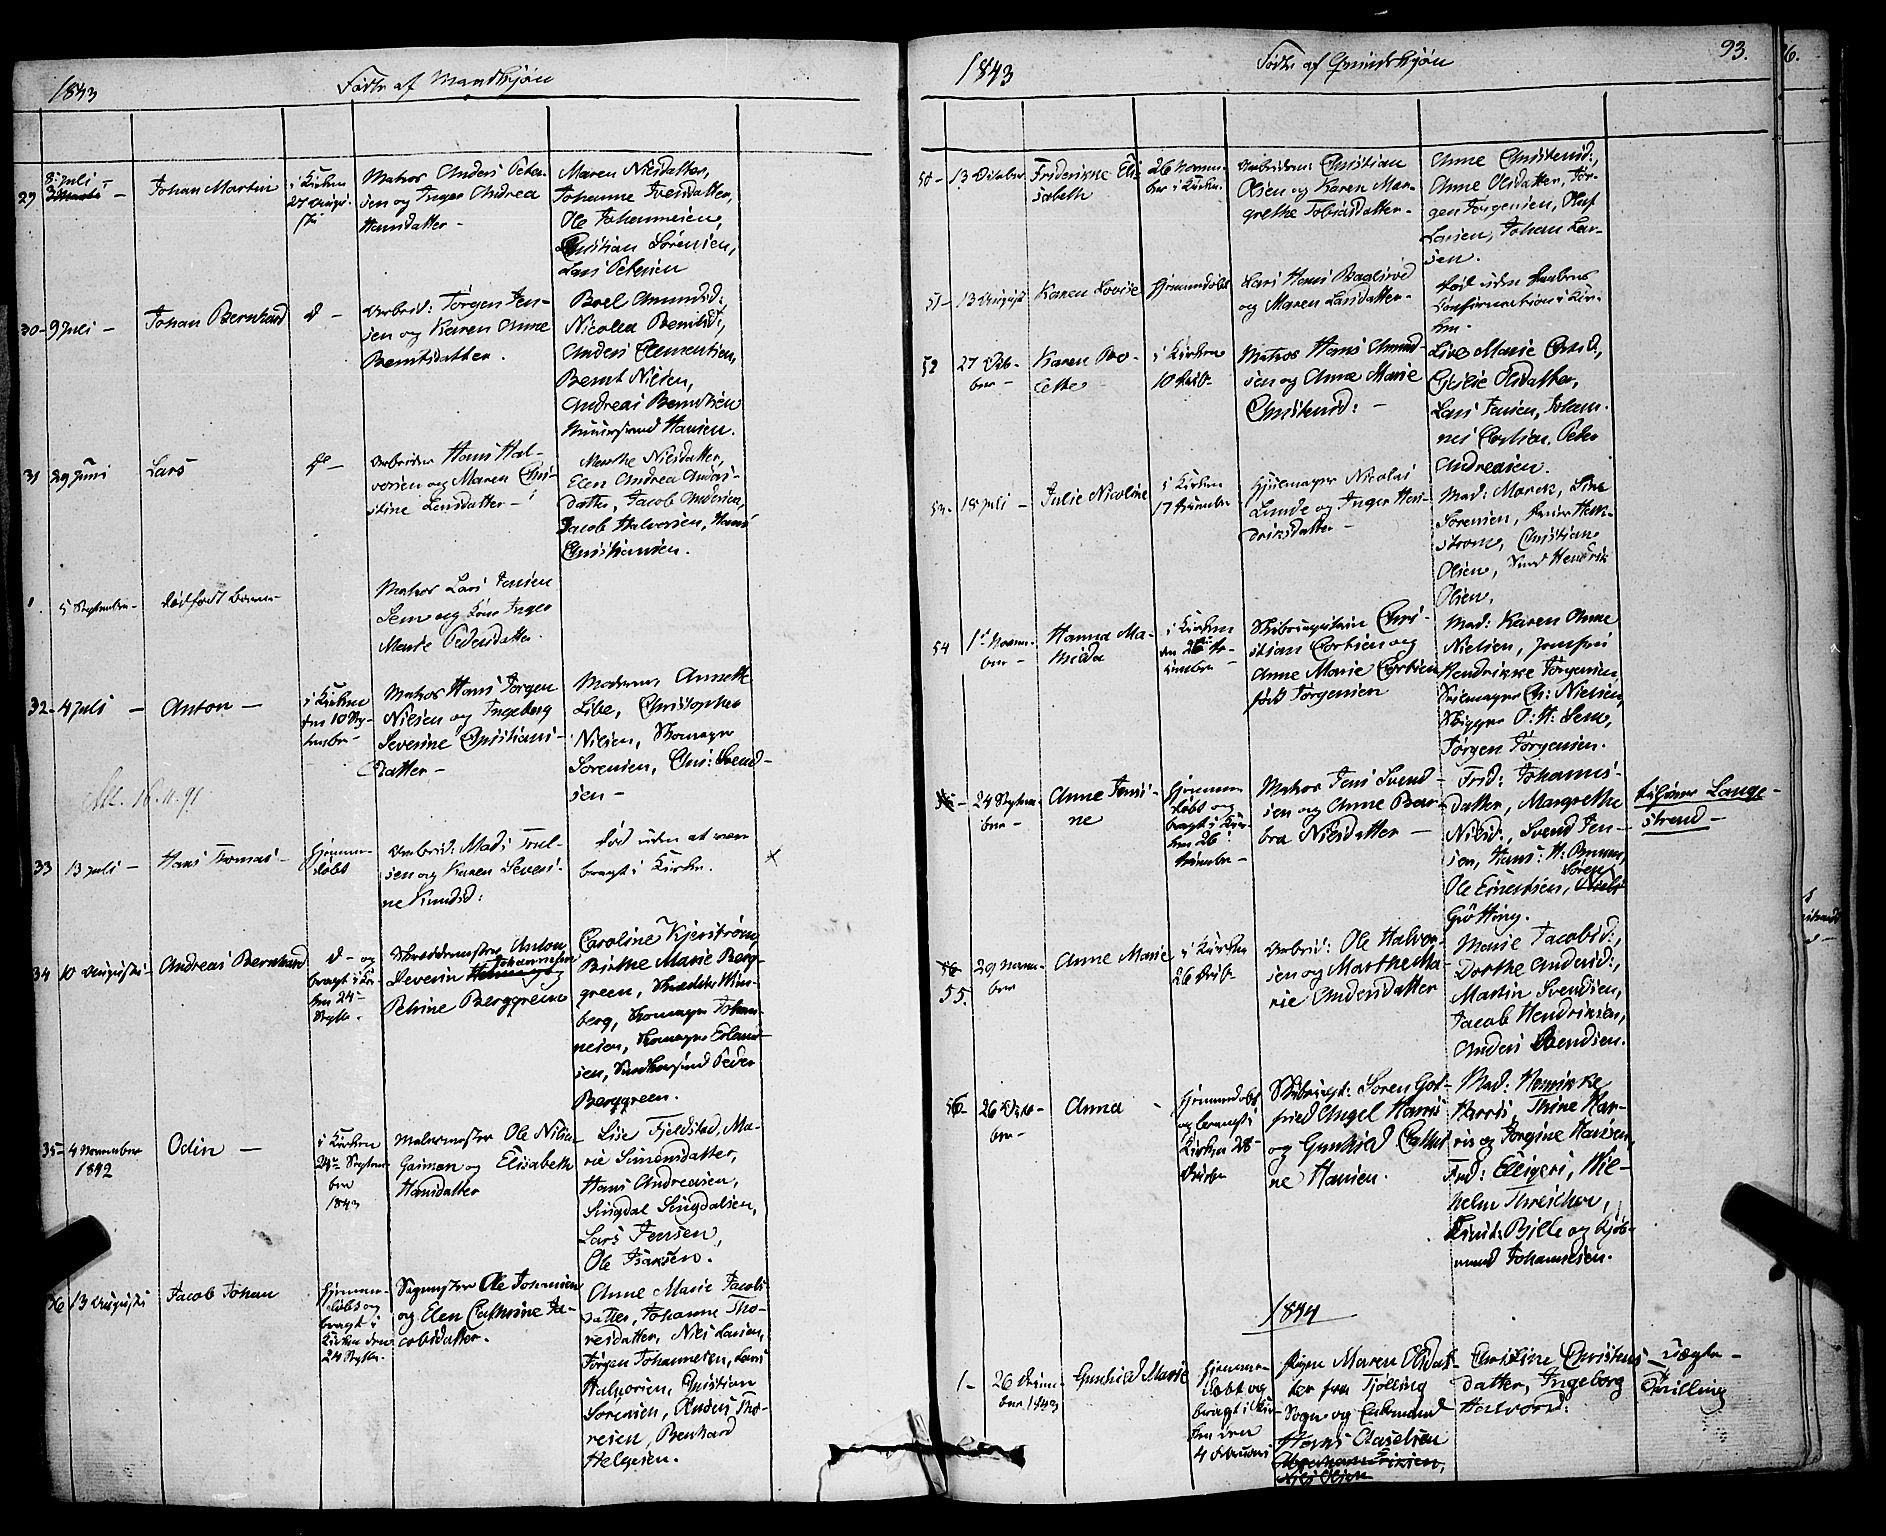 1843
Födte af Mandkjön
29
8 juli -
Johan Martin
i Kirken
27 August
Matros Anders Peter-
sen og Inger Andrea
Hansdatter -
Maren Nielsdatter,
Johanne Iversdatter,
Ole Johannesen,
Christian Sörensen,
Lars Petersen
30 - 9 juli -
Johan Bernhard
d -
Arbeid: Jörgen Jen-
sen og Karen Anne
Berntsdatter.
Boel Amundsd:,
Nicolea Berntsd:,
Anders Clementsen,
Bernt Nielsen,
Andreas Berntsen
Hansen.
31
29 Juni
Lars
d -
Arbeider Hans Hal-
vorsen og Maren Chri-
stine Larsdatter -
Marthe Nielsdatter,
Elen Andrea Anders-
datter, Jacob Andersen,
Jacob Halvorsen, Hans
Christiansen.
1.
5 September -
dødfødt Barn -
Matros Lars Jensen
Sem og Kone Inger
Marie Pedersdatter.
32 - 4 juli -
Anton -
i Kirken
den 10 Sep-
tember -
Matros Hans Jörgen
Nielsen og Ingeborg
Severine Christians-
datter -
Moderen, Annette
Lise, Christopher
Nielsen, Skomager
Sörensen, Chr: Svend-
sen -
Att. 16.11.91.
33
13 juli -
Hans Thomas -
hjemme-
döbt
Arbeid: Mads Troel-
sen og Karen Severi-
ne Knudsd:
död uden at være
bragt i Kirke.
34
10 August -
Andreas Bernhard
d - og
bragt i Kir-
ken 24 -
Septbr.
Skræddermester Anton
Severin Johannesen
Petrine Berggreen
Caroline Kjerström,
Birthe Marie Berg-
green, Skrædder Wim-
berg, Skomager Johan-
nesen, Skomager Erland-
sen, Peder
Berggreen.
35 - 4 November
1842
Odin -
i Kirken
24 - Septem-
ber
1843
Malermester Ole Nilsen
Gasman og Elisabeth
Hansdatter
Lise Fjeldstad, Ma-
rie Simensdatter,
Hans Andreasen,
Singdal Singdalsen,
Lars Jensen,
Ole Isaksen.
36
13 August
Jacob Johan
hjemme-
döbt og
bragt i
Kirken den
24 Septbr.
Sagmester Ole Johansen
og Elen Cathrine Ja-
cobsdatter.
Anne Marie Jacobs
datter, Johanne Tho-
resdatter, Niels Larsen,
Jörgen Johannesen, Lars
Halvorsen, Christian
Sörensen, Anders Tho-
resen, Bernhard
Helgesen.
1843
Födte af Qvindekjön
93.
50 - 13 October
Frederikke Eli-
sabeth
26 Novem-
ber i Kirken.
Arbeideren Christian
Olsen og Karen Mar-
grethe Tobiasdatter -
Anne Christensd:,
Anne Olsdatter, Jör-
gen Jörgensen, Oluf
Larsen, Johan Lar-
sen.
51 - 13 August
Karen Lovise
hjemmedöbt
Lars Hansen
og Maren Larsdatter -
död uden Daabens
Confirmation i Kir-
ken -
52
27 Octo-
ber -
Karen Bo-
lette
i Kirken
10 Decbr
Matros Hans Amund-
sen og Anne Marie
Christensd: -
Live Marie
Cicilie Olsdatter,
Lars Jensen, Johan-
nes Corlsen, Peder
Andreasen.
53 - 18 juli -
Julie Nicoline
i Kirken
17 December
Hjulmager Nicolai
Lunde og Inger Hen-
driksdatter -
Mad: Marck, Sine
Sörensen,
Christian
Olsen, Hendrik
Olsen.
54
1st Novem-
ber -
Hanna Ma-
thilda
i Kirken
den 26 de-
cember -
Skibscapitain Chri-
stian Corlsen og
Anne Marie Corlsen
född Jörgensen
Mad: Karen Anne
Nielsen, Jomfru
Hendrikke Jörgensen,
Seilmager Ch: Nielsen,
Skipper O: H: Sem,
Jörgen Jörgensen.
24 Septem-
ber -
Anne Jensi-
ne
hjemme-
döbt og
bragt i Kir-
ken 26
December -
Matros Jens Svend-
sen og Anne Bar-
bra Nilsdatter -
Fred: Johannis-
datter, Margrethe
Nilsd:, Svend Jen-
sen, Hans: H:
Ole Einertsen, Sören
Grötting.
tilhörer Lange-
strand -
55.
29 Novem-
ber
Anne Marie
i Kirken
26 Decbr
Arbeid: Ole Halvor-
sen og Marthe Ma-
rie Andersdatter
Marie Jacobsd:,
Dorthe Andersd:,
Martin Svendsen,
Jacob Hendriksen,
Anders Svendsen.
56 - 26 Octo-
ber -
Anna -
hjemmedöbt
og bragt i
Kirken 28
Decbr
Skibscapt: Sören Got-
fried Angel Harris
og Gunhild Cathri-
ne Hansen.
Mad: Henrikke
Harris, Thrine Har-
ris og Jorgine Hansen,
Fred: Elligers, Wil-
helm Threscher,
Bille og Kjöb-
mand Johannesen.
1844
1 -
26 Decem-
ber 1843
Gunhild Marie
hjemme-
döbt og
bragt i Kir-
ken den
4 Februari
Pigen Maren Olsdat-
ter fra Tjölling
Sogn og Enkemand
Hans Axelsen
Niels Olsen
Christine Christens-
datter, Ingeborg
Halvorsd:
- Uægte -
Tvilling